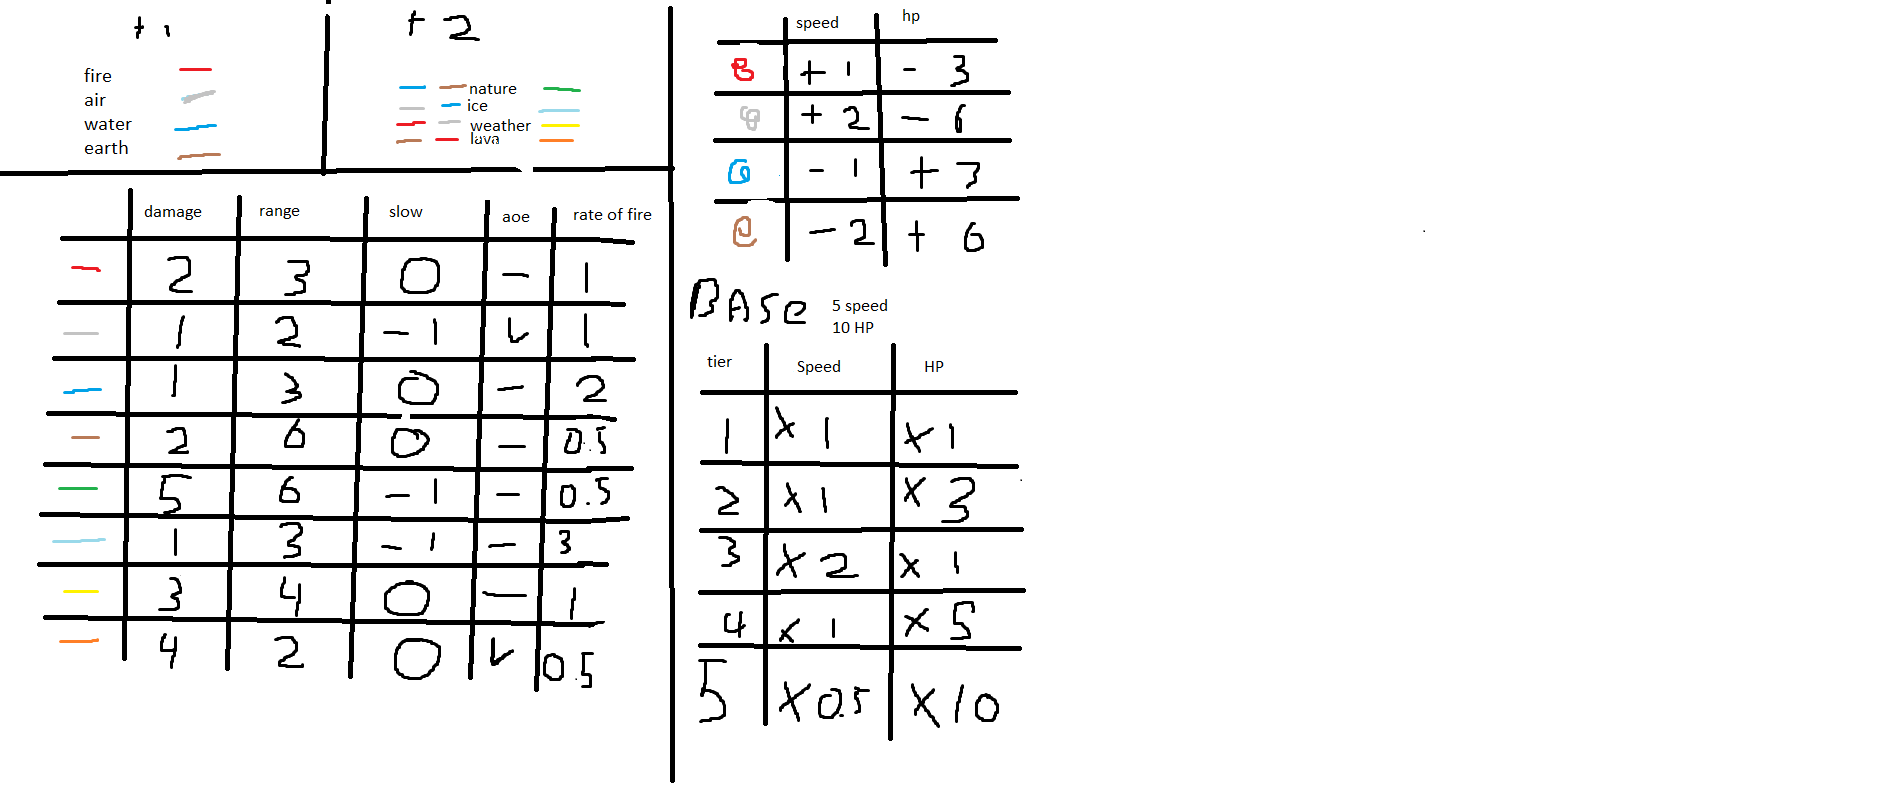 + 1
fire
air
water
earth
+ 2
nature
ice
weather
lava
damage range slow aoe rate of fire
2 3 0 - 1
1 2 -1 ✓ 1
1 3 0 - 2
2 6 0 - 0.5
5 6 -1 - 0.5
1 3 -1 - 3
3 4 0 - 1
4 2 0 ✓ 0.5
speed hp
+1 -3
+2 -6
-1 +3
-2 +6
BASe
5 speed
10 HP
tier Speed HP
1 x1 x1
2 x1 x3
3 x2 x1
4 x1 x5
5 x0.5 x10